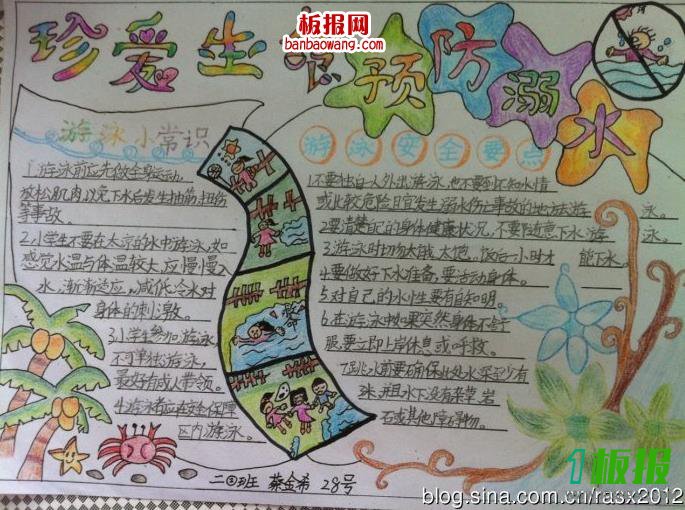 板报网
banbaowang.com
珍爱生
预防溺水
游泳小常识
1.游泳前应先做全身运动,
放松肌肉,以免下水后发生抽筋、扭伤
等事故。
2.小学生不要在太凉的水中游泳,如
感觉水温与体温较大,应慢慢入
水,渐渐适应,减低冷水对
身体的刺激。
3.小学生参加游泳,
不可单独游泳,
最好有成人带领。
4.游泳者应在安全保障
区内游泳。
游泳安全要点
1.不要独自一人外出游泳,也不要到不知水情
或比较危险且宜发生溺水伤亡事故的地方游泳。
2.要清楚自己的身体健康状况,不要随意下水游泳。
3.游泳时切勿太饿、太饱。饭后一小时才能下水。
4.要做好下水准备,要活动身体。
5.对自己的水性要有自知明。
6.在游泳中如果突然身体不舒
服,要立即上岸休息或呼救。
7.跳水前要确保此处水深至少有
米,并且水下没有杂草、岩
石或其他障碍物。
二④班 蔡金希 28号
1板报
blog.sina.com.cn/rasx2012